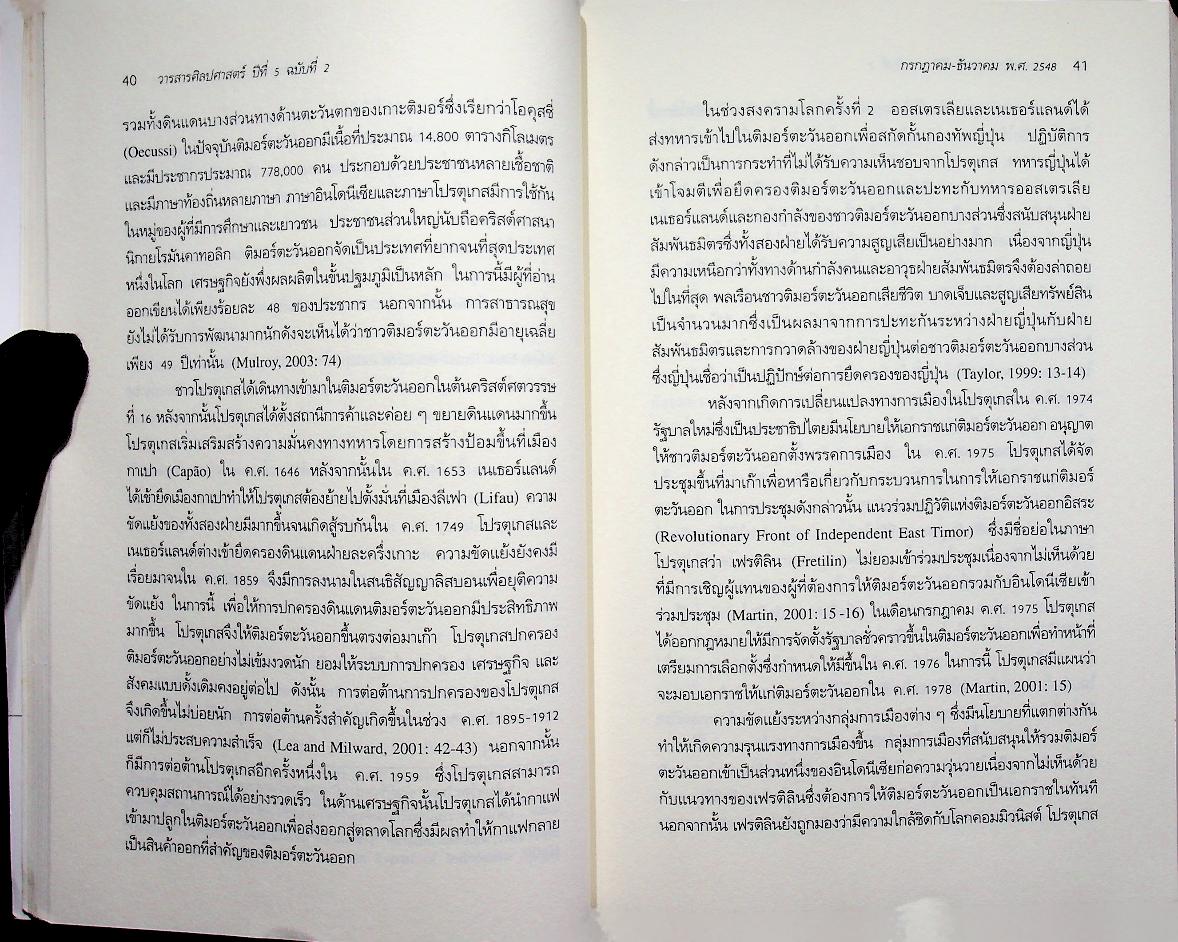 40 วารสารศิลปศาสตร์ ปีที่ 5 ฉบับที่ 2
รวมทั้งดินแดนบางส่วนทางด้านตะวันตกของเกาะติมอร์ซึ่งเรียกว่าโอคุสซี่
(Oecussi) ในปัจจุบันติมอร์ตะวันออกมีเนื้อที่ประมาณ 14,800 ตารางกิโลเมตร
และมีประชากรประมาณ 778,000 คน ประกอบด้วยประชาชนหลายเชื้อชาติ
และมีภาษาท้องถิ่นหลายภาษา ภาษาอินโดนีเซียและภาษาโปรตุเกสมีการใช้กัน
ในหมู่ของผู้ที่มีการศึกษาและเยาวชน ประชาชนส่วนใหญ่นับถือคริสต์ศาสนา
นิกายโรมันคาทอลิก ติมอร์ตะวันออกจัดเป็นประเทศที่ยากจนที่สุดประเทศ
หนึ่งในโลก เศรษฐกิจยังพึ่งผลผลิตในขั้นปฐมภูมิเป็นหลัก ในการนี้มีผู้ที่อ่าน
ออกเขียนได้เพียงร้อยละ 48 ของประชากร นอกจากนั้น การสาธารณสุข
ยังไม่ได้รับการพัฒนามากนักดังจะเห็นได้ว่าชาวติมอร์ตะวันออกมีอายุเฉลี่ย
เพียง 49 ปีเท่านั้น (Mulroy, 2003: 74)
ชาวโปรตุเกสได้เดินทางเข้ามาในติมอร์ตะวันออกในต้นคริสต์ศตวรรษ
ที่ 16 หลังจากนั้นโปรตุเกสได้ตั้งสถานีการค้าและค่อย ๆ ขยายดินแดนมากขึ้น
โปรตุเกสเริ่มเสริมสร้างความมั่นคงทางทหารโดยการสร้างป้อมขึ้นที่เมือง
กาเปา (Capão) ใน ค.ศ. 1646 หลังจากนั้นใน ค.ศ. 1653 เนเธอร์แลนด์
ได้เข้ายึดเมืองกาเปาทำให้โปรตุเกสต้องย้ายไปตั้งมั่นที่เมืองลีเฟา (Lifau) ความ
ขัดแย้งของทั้งสองฝ่ายมีมากขึ้นจนเกิดสู้รบกันใน ค.ศ. 1749 โปรตุเกสและ
เนเธอร์แลนด์ต่างเข้ายึดครองดินแดนฝ่ายละครึ่งเกาะ ความขัดแย้งยังคงมี
เรื่อยมาจนใน ค.ศ. 1859 จึงมีการลงนามในสนธิสัญญาลิสบอนเพื่อยุติความ
ขัดแย้ง ในการนี้ เพื่อให้การปกครองดินแดนติมอร์ตะวันออกมีประสิทธิภาพ
มากขึ้น โปรตุเกสจึงให้ติมอร์ตะวันออกขึ้นตรงต่อมาเก๊า โปรตุเกสปกครอง
ติมอร์ตะวันออกอย่างไม่เข้มงวดนัก ยอมให้ระบบการปกครอง เศรษฐกิจ และ
สังคมแบบดั้งเดิมคงอยู่ต่อไป ดังนั้น การต่อต้านการปกครองของโปรตุเกส
จึงเกิดขึ้นไม่บ่อยนัก การต่อต้านครั้งสำคัญเกิดขึ้นในช่วง ค.ศ. 1895-1912
แต่ก็ไม่ประสบความสำเร็จ (Lea and Milward, 2001: 42-43) นอกจากนั้น
ก็มีการต่อต้านโปรตุเกสอีกครั้งหนึ่งใน ค.ศ. 1959 ซึ่งโปรตุเกสสามารถ
ควบคุมสถานการณ์ได้อย่างรวดเร็ว ในด้านเศรษฐกิจนั้นโปรตุเกสได้นำกาแฟ
เข้ามาปลูกในติมอร์ตะวันออกเพื่อส่งออกสู่ตลาดโลกซึ่งมีผลทำให้กาแฟกลาย
เป็นสินค้าออกที่สำคัญของติมอร์ตะวันออก
กรกฎาคม-ธันวาคม พ.ศ. 2548 41
ในช่วงสงครามโลกครั้งที่ 2 ออสเตรเลียและเนเธอร์แลนด์ได้
ส่งทหารเข้าไปในติมอร์ตะวันออกเพื่อสกัดกั้นกองทัพญี่ปุ่น ปฏิบัติการ
ดังกล่าวเป็นการกระทำที่ไม่ได้รับความเห็นชอบจากโปรตุเกส ทหารญี่ปุ่นได้
เข้าโจมตีเพื่อยึดครองติมอร์ตะวันออกและปะทะกับทหารออสเตรเลีย
เนเธอร์แลนด์และกองกำลังของชาวติมอร์ตะวันออกบางส่วนซึ่งสนับสนุนฝ่าย
สัมพันธมิตรซึ่งทั้งสองฝ่ายได้รับความสูญเสียเป็นอย่างมาก เนื่องจากญี่ปุ่น
มีความเหนือกว่าทั้งทางด้านกำลังคนและอาวุธฝ่ายสัมพันธมิตรจึงต้องล่าถอย
ไปในที่สุด พลเรือนชาวติมอร์ตะวันออกเสียชีวิต บาดเจ็บและสูญเสียทรัพย์สิน
เป็นจำนวนมากซึ่งเป็นผลมาจากการปะทะกันระหว่างฝ่ายญี่ปุ่นกับฝ่าย
สัมพันธมิตรและการกวาดล้างของฝ่ายญี่ปุ่นต่อชาวติมอร์ตะวันออกบางส่วน
ซึ่งญี่ปุ่นเชื่อว่าเป็นปฏิปักษ์ต่อการยึดครองของญี่ปุ่น (Taylor, 1999: 13-14)
หลังจากเกิดการเปลี่ยนแปลงทางการเมืองในโปรตุเกสใน ค.ศ. 1974
รัฐบาลใหม่ซึ่งเป็นประชาธิปไตยมีนโยบายให้เอกราชแก่ติมอร์ตะวันออก อนุญาต
ให้ชาวติมอร์ตะวันออกตั้งพรรคการเมือง ใน ค.ศ. 1975 โปรตุเกสได้จัด
ประชุมขึ้นที่มาเก๊าเพื่อหารือเกี่ยวกับกระบวนการในการให้เอกราชแก่ติมอร์
ตะวันออก ในการประชุมดังกล่าวนั้น แนวร่วมปฏิวัติแห่งติมอร์ตะวันออกอิสระ
(Revolutionary Front of Independent East Timor) ซึ่งมีชื่อย่อในภาษา
โปรตุเกสว่า เฟรติลิน (Fretilin) ไม่ยอมเข้าร่วมประชุมเนื่องจากไม่เห็นด้วย
ที่มีการเชิญผู้แทนของผู้ที่ต้องการให้ติมอร์ตะวันออกรวมกับอินโดนีเซียเข้า
ร่วมประชุม (Martin, 2001: 15 -16) ในเดือนกรกฎาคม ค.ศ. 1975 โปรตุเกส
ได้ออกกฎหมายให้มีการจัดตั้งรัฐบาลชั่วคราวขึ้นในติมอร์ตะวันออกเพื่อทำหน้าที่
เตรียมการเลือกตั้งซึ่งกำหนดให้มีขึ้นใน ค.ศ. 1976 ในการนี้ โปรตุเกสมีแผนว่า
จะมอบเอกราชให้แก่ติมอร์ตะวันออกใน ค.ศ. 1978 (Martin, 2001: 15)
ความขัดแย้งระหว่างกลุ่มการเมืองต่าง ๆ ซึ่งมีนโยบายที่แตกต่างกัน
ทำให้เกิดความรุนแรงทางการเมืองขึ้น กลุ่มการเมืองที่สนับสนุนให้รวมติมอร์
ตะวันออกเข้าเป็นส่วนหนึ่งของอินโดนีเซียก่อความวุ่นวายเนื่องจากไม่เห็นด้วย
กับแนวทางของเฟรติลินซึ่งต้องการให้ติมอร์ตะวันออกเป็นเอกราชในทันที
นอกจากนั้น เฟรติลินยังถูกมองว่ามีความใกล้ชิดกับโลกคอมมิวนิสต์ โปรตุเกส